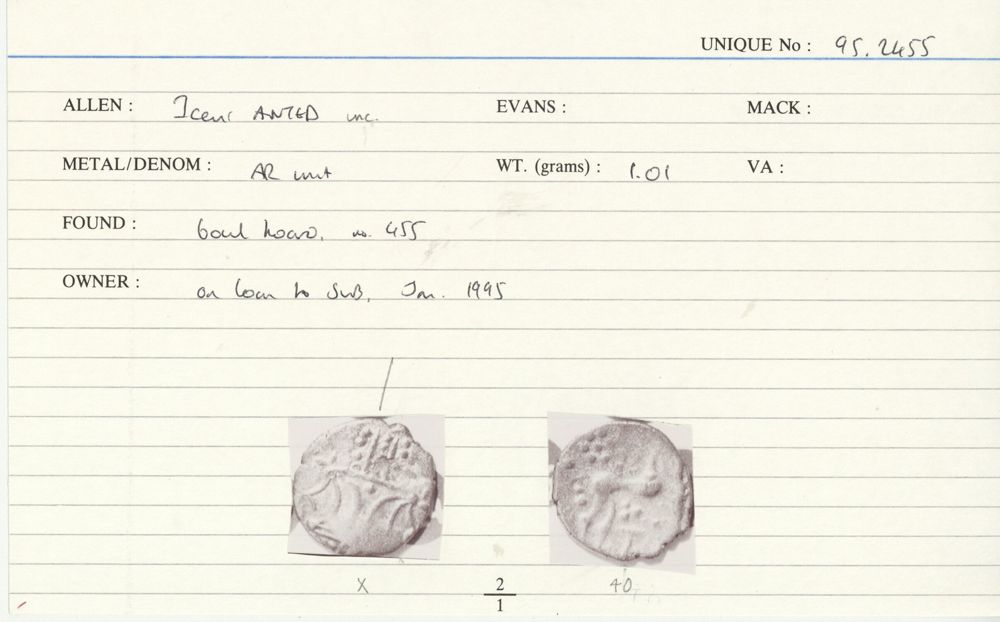 UNIQUE No : 95.2455
ALLEN : Iceni ANTED unc. EVANS : MACK :
METAL/DENOM : AR unit WT. (grams) : 1.01 VA :
FOUND : bowl hoard, no. 455
OWNER : on loan to SUB, Jan. 1995
X 2 40
1